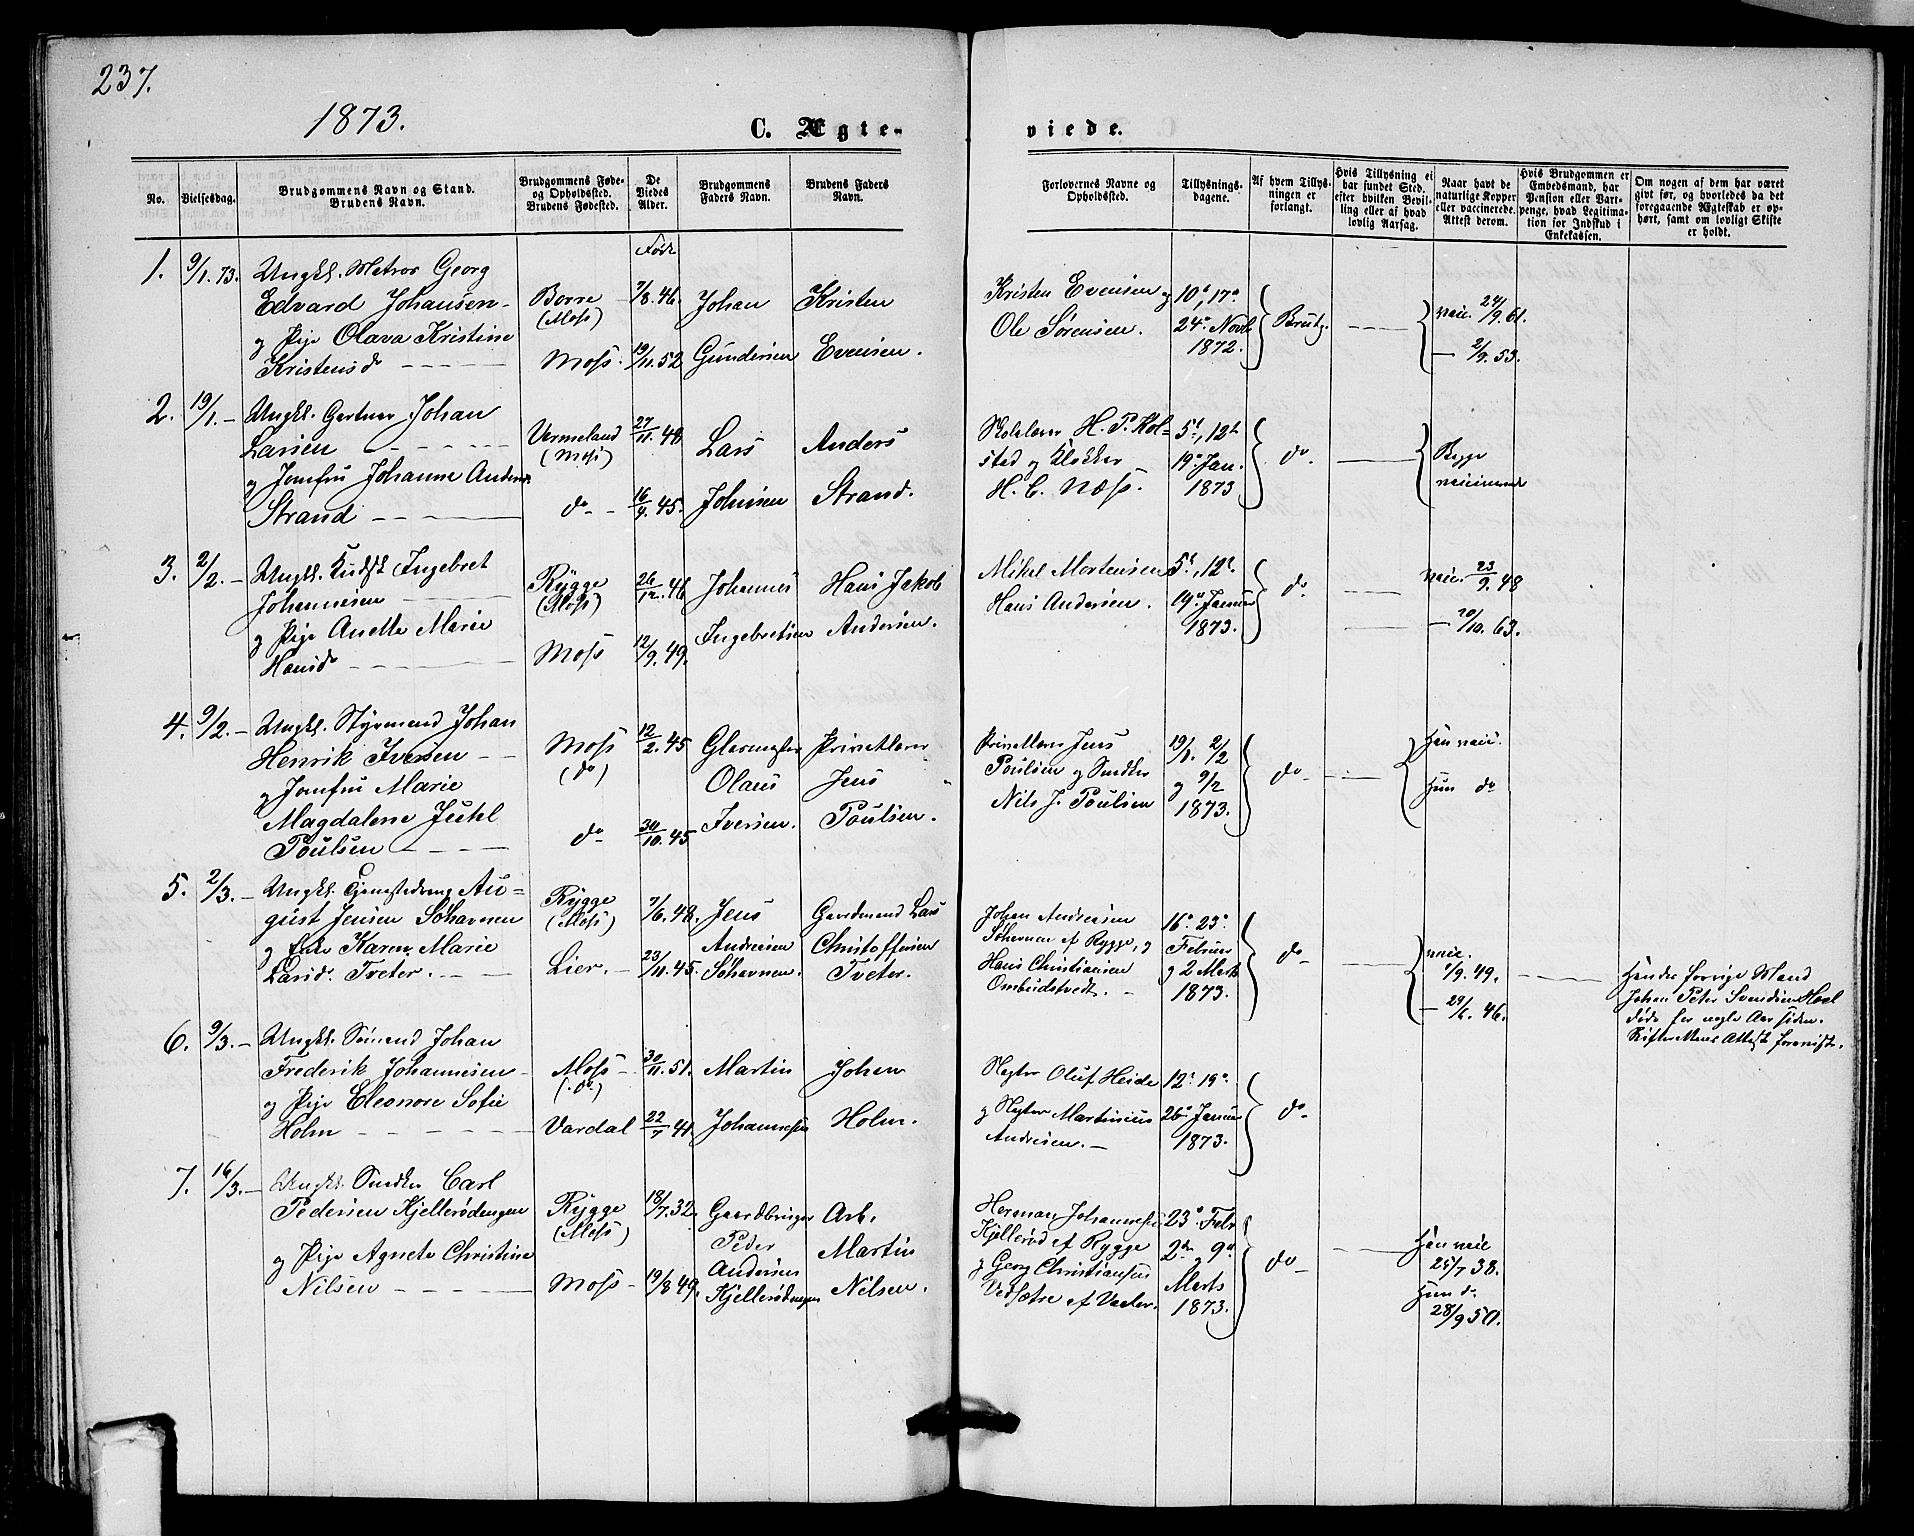 237.
1873.
C. Ægte-
viede.
No.
Vielsesdag.
Brudgommens Navn og Stand.
Brudens Navn.
Brudgommens Føde-
og Opholdssted.
Brudens Fødested.
De
Viedes
Alder.
Brudgommens
Faders Navn.
Brudens Faders
Navn.
Forlovernes Navne og
Opholdssted.
Tillysnings-
dagene.
Af hvem Tillys-
ningen er
forlangt.
Hvis Tillysning ei
har fundet Sted,
efter hvilken Bevil-
ling eller af hvad
lovlig Aarsag.
Naar havt de
naturlige Kopper
eller vaccinerede.
Attest derom.
Hvis Brudgommen er
Embedsmand, har
Pension eller Vart-
penge, hvad Legitima-
tion for Indskud i
Enkekassen.
Om nogen af dem har været
givt før, og hvorledes da det
foregaaende Ægteskab er op-
hørt, samt om lovligt Skifte
er holdt.
1. 9/1. 73.
Ungkl. Matros Georg
Edvard Johansen
og Pige Olava Kristine
Kristensd
Borre
(Moss)
Moss.
Født
7/8. 46.
19/11. 52
Johan
Gundersen
Kristen
Evensen.
Kristen Evensen og
Ole Sørensen.
10de, 17de
24de Novb
1872.
Brudg.
vacc. 24/9. 61.
— 2/9. 53.
2. 19/1. —
Ungkl. Gartner Johan
Larsen
og Jomfru Johanne Anders.
Strand
Vermeland
(Moss)
do
27/11. 48
16/9. 45.
Lars
Johnsen
Anders
Strand.
Skolelærer H. P. Kol-
stad og Klokker
H. C. Næss.
5te, 12te
19de Jan.
1873
do
Begge
vaccinerede
3. 2/2. —
Ungkl. Kudsk Ingebret
Johannesen
og Pige Anette Marie
Hansd
Rygge
(Moss)
Moss
26/12. 46
12/9. 49.
Johannes
Ingebretsen
Hans Jakob
Andersen.
Mikel Mortensen
Hans Andersen.
5te, 12te
19de Januar
1873.
do
vacc. 23/9. 48
— 20/10. 63.
4. 9/2. —
Ungkl. Styrmand Johan
Henrik Iversen
og Jomfru Marie
Magdalene Juhl
Poulsen
Moss
(do)
do
12/2. 45
30/10. 45
Glasmester
Olaus
Iversen.
Privatlærer
Jens
Poulsen.
Privatlærer Jens
Poulsen og Snedker
Nils J. Poulsen
19/1. 2/2
og 9/2
1873.
do
Han vacc.
Hun do
5. 2/3. —
Ungkl. Tjenestedreng Au-
gust Jensen Søhavnen
og Enke Karen Marie
Larsd. Tveter.
Rygge
(Moss)
Lier.
7/6. 48.
23/11. 45.
Jens
Andresen
Søhavnen.
Gaardmand Lars
Christoffersen
Tveter.
Johan Andreasen
Søhavnen af Rygge, og
Hans Christiansen
Ombudstvedt.
16de 23de
Februar
og 2 Marts
1873.
do
vacc.
/9. 49.
— 29/6. 46.
Hendes forrige Mand
Johan Peter Svendsen Hoel
døde for nogle Aar siden.
Skifterettens Attest forevist.
6. 9/3. —
Ungkl. Sømand Johan
Frederik Johannesen
og Pige Eleonore Sofie
Holm
Moss
(do)
Vardal
30/11. 51.
22/7. 41.
Martin
Johannesen
Johan
Holm.
Slagter Oluf Heide
og Slagter Martinius
Andresen.
12te 19de
26de Januar
1873.
do
7. 16/3. —
Ungkl. Snedker Carl
Pedersen Kjellerødengen
og Pige Agnete Christine
Nilsen
Rygge
(Moss)
Moss
18/7. 32.
19/8. 49.
Gaardbruger
Peder
Andersen
Kjellerødengen
Arb.
Martin
Nilsen.
Herman Johannesen
Kjellerød af Rygge
og Georg Christiansen
Vedsætre af Vaaler.
23de Febr
2den 9de
Marts
1873.
do
Han vacc
25/7 38.
Hun do
28/9 50.